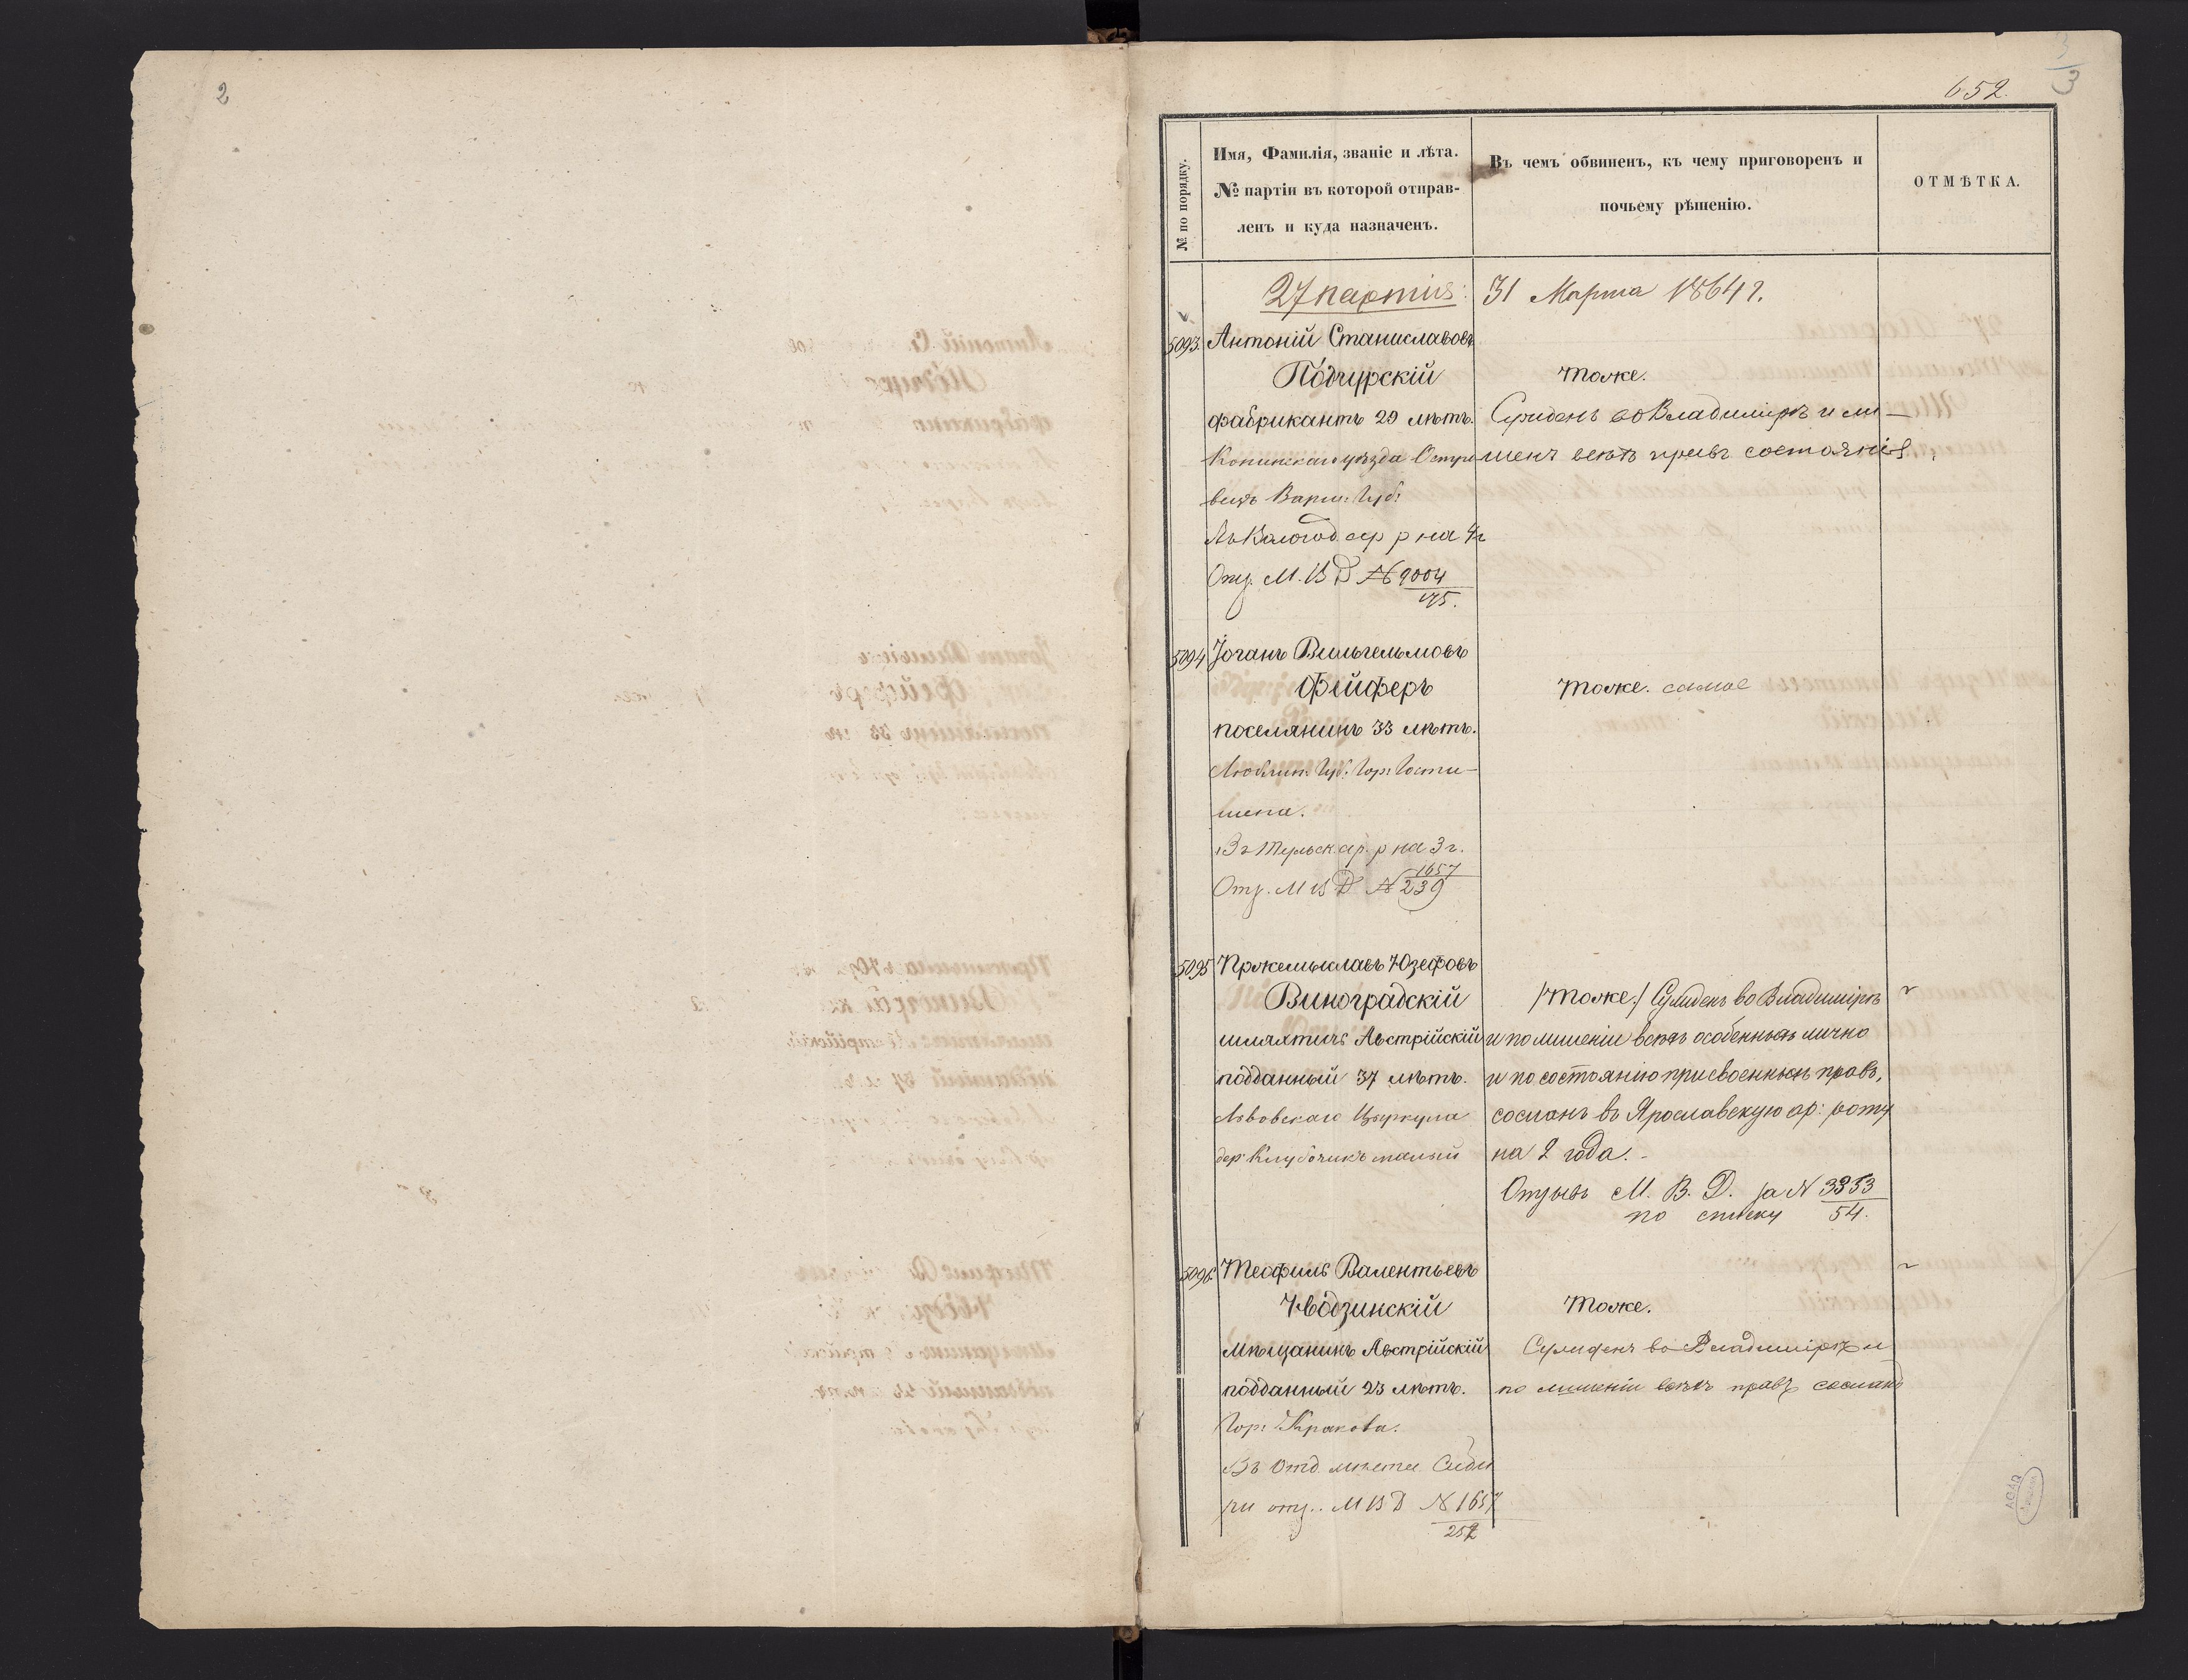 2
3
652.
№ по порядку.
Имя, Фамилія, званіе и лѣта.
№ партіи въ которой отправ-
ленъ и куда назначенъ.
Въ чемъ обвиненъ, къ чему приговоренъ и
почьему рѣшенію.
ОТМѢТКА.
27 партія: 31 Марта 1864 г.
5093. Антоній Станиславовъ
Подчурскій тоже.
фабрикантъ 29 лѣтъ. Сужденъ во Владимірѣ и ли-
Конинскаго уѣзда шенъ всѣхъ правъ состоянія.
Варш: Губ:
Въ Вологод ар р на 4 г
Отз. М. В Д № 9004
175.
5094 Іоганъ Вильгельмовъ
Фейферъ тоже. самое
поселянинъ 33 лѣтъ.
Люблин: Губ: Гор: Гости-
шена.
Въ Тульск. ар. р на 3 г.
Отз. М В Д № 1657
239
5095 Пржемыславъ Юзефовъ
Виноградскій /тоже./ Сужденъ во Владимірѣ
шляхтичъ Австрійскій и по лишеніи всѣхъ особенныхъ лично
подданный 37 лѣтъ. и по состоянію присвоенныхъ правъ,
Львовскаго Циркула сосланъ въ Ярославскую ар: роту
дер: Клубочикъ малый на 2 года.-
Отзывъ М. В. Д. за № 3353
по списку 54.
5096. Теофиль Валентьевъ
Гводзинскій тоже.
мѣщанинъ Австрійскій Сужденъ во Владимірѣ и
подданный 23 лѣтъ. по лишеніи всѣхъ правъ сосланъ
Гор: Кракова.
Въ отд. мѣста Сиби
ри отз.. М В Д № 1657
252
AGAD